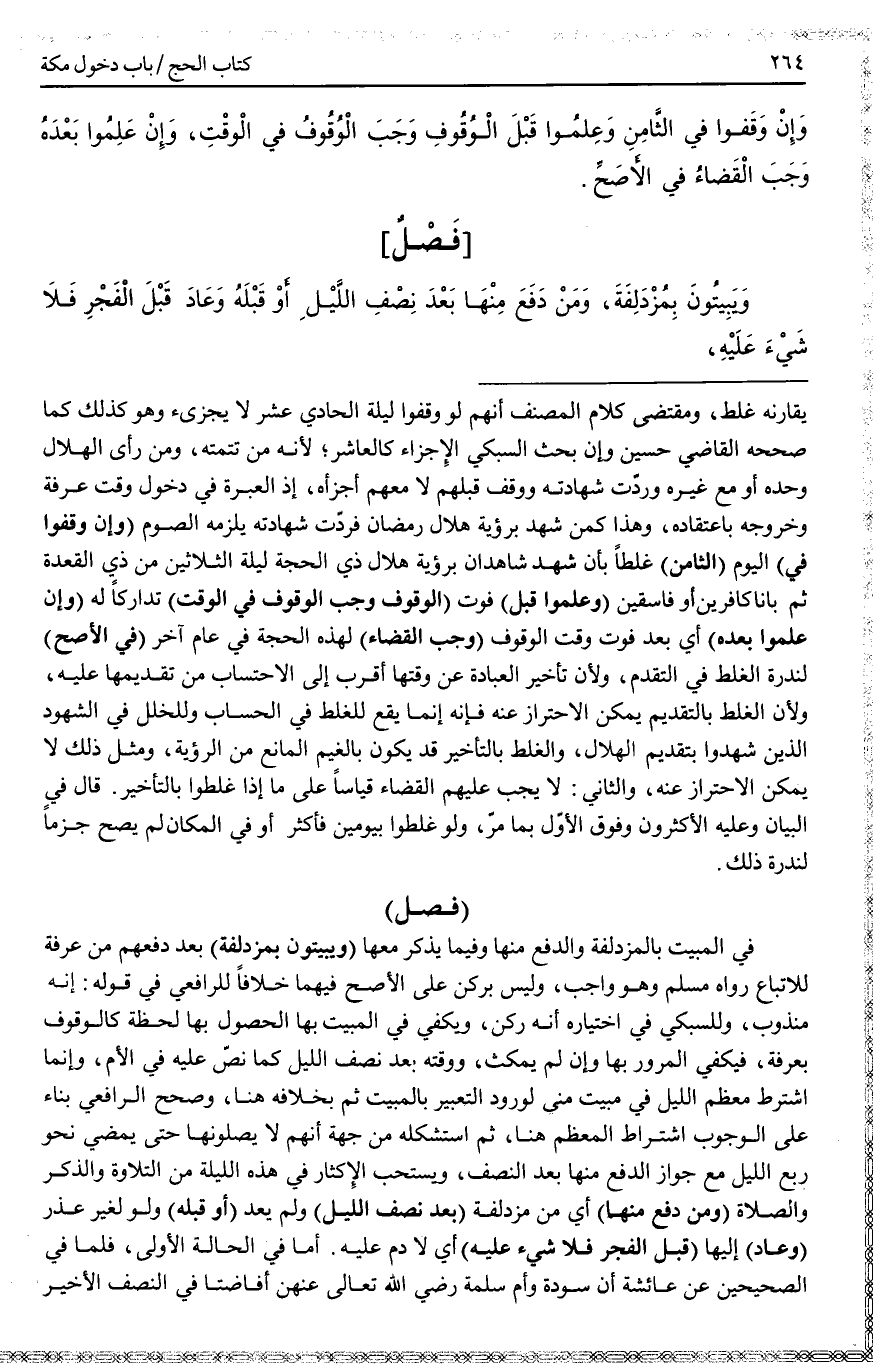 ٢٦٤
كتاب الحج / باب دخول مكة
وَإِنْ وَقَفُوا في الثَّامِنِ وَعِلمُوا قَبْلَ الْوُقُوفِ وَجَبَ الْوُقُوفُ في الْوقْتِ، وَإِنْ عَلِمُوا بَعْدَهُ
وَجَبَ الْقَضاءُ في الأَصَحِّ.
[فَصْلٌ]
وَيَبِيتُونَ بِمُزْدَلِفَةَ، وَمَنْ دَفَعَ مِنْهَا بَعْدَ نِصْفِ اللَّيْلِ أَوْ قَبْلَهُ وَعَادَ قَبْلَ الْفَجْرِ فَلَا
شَيْءَ عَلَيْهِ،
يقارنه غلط، ومقتضى كلام المصنف أنهم لو وقفوا ليلة الحادي عشر لا يجزىء وهو كذلك كما
صححه القاضي حسين وإن بحث السبكي الإجزاء كالعاشر؛ لأنه من تتمته، ومن رأى الهلال
وحده أو مع غيره وردّت شهادته ووقف قبلهم لا معهم أجزأه، إذ العبرة في دخول وقت عرفة
وخروجه باعتقاده، وهذا كمن شهد برؤية هلال رمضان فردّت شهادته يلزمه الصوم (وإن وقفوا
في) اليوم (الثامن) غلطاً بأن شهد شاهدان برؤية هلال ذي الحجة ليلة الثلاثين من ذي القعدة
ثم باناكافرين أو فاسقين (وعلموا قبل) فوت (الوقوف وجب الوقوف في الوقت) تداركاً له (وإن
علموا بعده) أي بعد فوت وقت الوقوف (وجب القضاء) لهذه الحجة في عام آخر (في الأصح)
لندرة الغلط في التقدم، ولأن تأخير العبادة عن وقتها أقرب إلى الاحتساب من تقديمها عليه،
ولأن الغلط بالتقديم يمكن الاحتراز عنه فإنه إنما يقع للغلط في الحساب وللخلل في الشهود
الذين شهدوا بتقديم الهلال، والغلط بالتأخير قد يكون بالغيم المانع من الرؤية، ومثل ذلك لا
يمكن الاحتراز عنه، والثاني: لا يجب عليهم القضاء قياساً على ما إذا غلطوا بالتأخير. قال في
البيان وعليه الأكثرون وفوق الأوّل بما مرّ، ولو غلطوا بيومين فأكثر أو في المكان لم يصح جزماً
لندرة ذلك.
(فصل)
في المبيت بالمزدلفة والدفع منها وفيما يذكر معها (ويبيتون بمزدلفة) بعد دفعهم من عرفة
للاتباع رواه مسلم وهو واجب، وليس بركن على الأصح فيهما خلافاً للرافعي في قوله: إنه
منذوب، وللسبكي في اختياره أنه ركن، ويكفي في المبيت بها الحصول بها لحظة كالوقوف
بعرفة، فيكفي المرور بها وإن لم يمكث، ووقته بعد نصف الليل كما نصّ عليه في الأم، وإنما
اشترط معظم الليل في مبيت منى لورود التعبير بالمبيت ثم بخلافه هنا، وصحح الرافعي بناء
على الوجوب اشتراط المعظم هنا، ثم استشكله من جهة أنهم لا يصلونها حتى يمضي نحو
ربع الليل مع جواز الدفع منها بعد النصف، ويستحب الإكثار في هذه الليلة من التلاوة والذكر
والصلاة (ومن دفع منها) أي من مزدلفة (بعد نصف الليل) ولم يعد (أو قبله) ولو لغير عذر
(وعاد) إليها (قبل الفجر فلا شيء عليه) أي لا دم عليه. أما في الحالة الأولى، فلما في
الصحيحين عن عائشة أن سودة وأم سلمة رضي الله تعالى عنهن أفاضتا في النصف الأخير